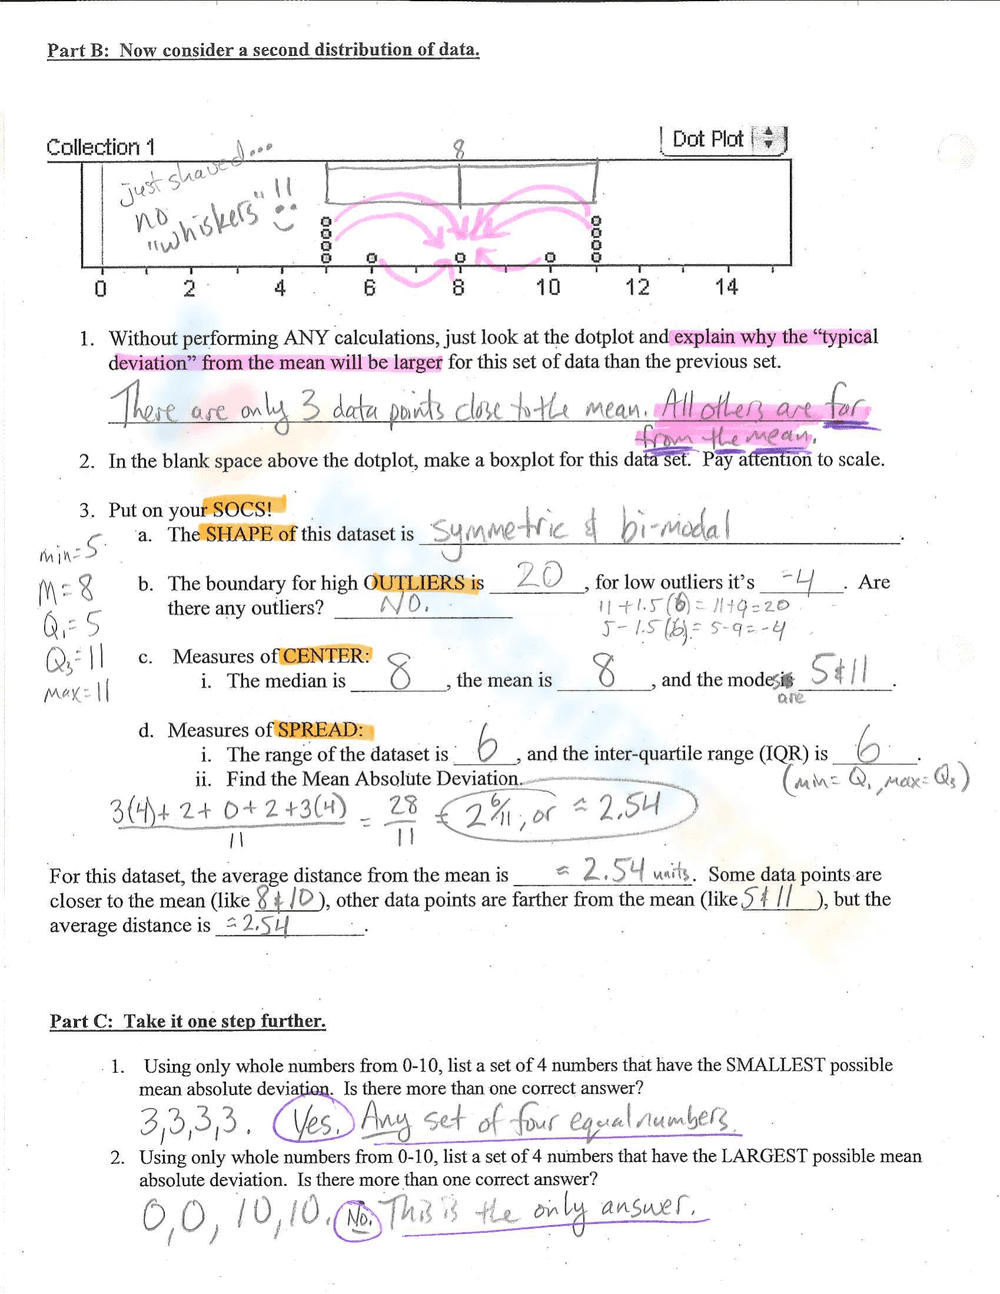 Part B: Now consider a second distribution of data.
Collection 1
8
Dot Plot
just shaved...
no
"whiskers"!!
0 2 4 6 8 10 12 14
1. Without performing ANY calculations, just look at the dotplot and explain why the “typical
deviation” from the mean will be larger for this set of data than the previous set.
There are only 3 data points close to the mean. All others are far
from the mean.
2. In the blank space above the dotplot, make a boxplot for this data set. Pay attention to scale.
3. Put on your SOCS!
a. The SHAPE of this dataset is symmetric & bi-modal.
min=5
M=8
Q1=5
Q3=11
max=11
b. The boundary for high OUTLIERS is 20, for low outliers it’s -4. Are
there any outliers? NO.
11+1.5(6)=11+9=20
5-1.5(6)=5-9=-4
c. Measures of CENTER:
i. The median is 8, the mean is 8, and the modes is 5&11.
are
d. Measures of SPREAD:
i. The range of the dataset is 6, and the inter-quartile range (IQR) is 6.
(min=Q1, max=Q3)
ii. Find the Mean Absolute Deviation.
3(4)+2+0+2+3(4)/11 = 28/11 = 2 6/11, or ≈ 2.54
For this dataset, the average distance from the mean is ≈ 2.54 units. Some data points are
closer to the mean (like 8&10), other data points are farther from the mean (like 5&11), but the
average distance is ≈2.54.
Part C: Take it one step further.
1. Using only whole numbers from 0-10, list a set of 4 numbers that have the SMALLEST possible
mean absolute deviation. Is there more than one correct answer?
3,3,3,3. Yes. Any set of four equal numbers.
2. Using only whole numbers from 0-10, list a set of 4 numbers that have the LARGEST possible mean
absolute deviation. Is there more than one correct answer?
0,0,10,10. No. This is the only answer.